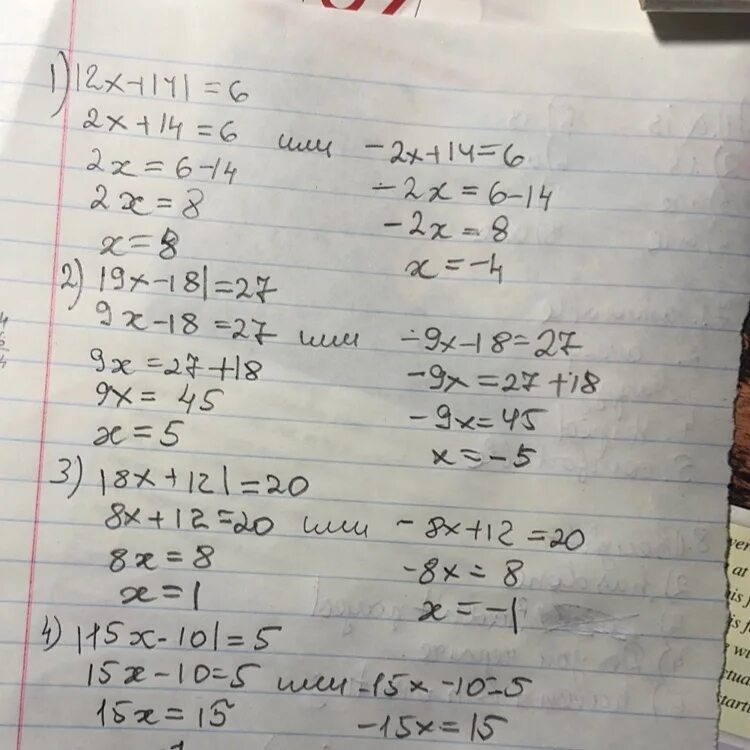 1) |2x+14| = 6
2x+14=6 или -2x+14=6
2x=6-14 -2x=6-14
2x=8 -2x=8
x=8 x=-4
2) |9x-18|=27
9x-18=27 или -9x-18=27
9x=27+18 -9x=27+18
9x=45 -9x=45
x=5 x=-5
3) |8x+12|=20
8x+12=20 или -8x+12=20
8x=8 -8x=8
x=1 x=-1
4) |15x-10|=5
15x-10=5 или -15x-10=5
15x=15 -15x=15
at